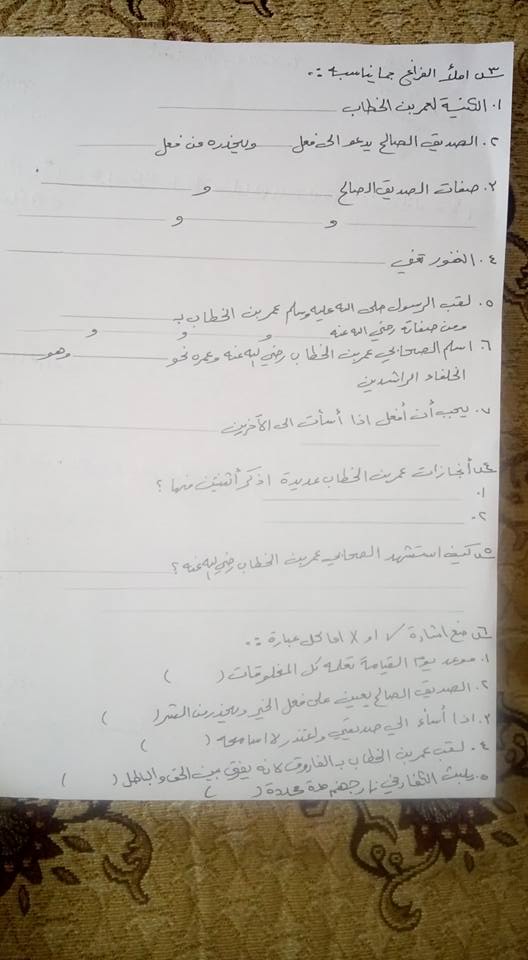 س٣ املأ الفراغ بما يناسبه :.
١. الكنية لعمر بن الخطاب
٢. الصديق الصالح يدعو الى فعل ويحذره من فعل
٣. صفات الصديق الصالح و
و و
٤. الغفور تعني
٥. لقب الرسول صلى الله عليه وسلم عمر بن الخطاب بـ
ومن صفاته رضي الله عنه و و و
٦. اسلم الصحابي عمر بن الخطاب رضي الله عنه وعمره نحو وهو
الخلفاء الراشدين
٧. يجب أن أفعل اذا أسأت الى الآخرين
س٤ أنجازات عمر بن الخطاب عديدة اذكر أثنين منها ؟
١.
٢.
س٥ كيف استشهد الصحابي عمر بن الخطاب رضي الله عنه ؟
س٦ ضع اشارة ✓ او X امام كل عبارة :.
١. موعد يوم القيامة تعلمه كل المخلوقات ( )
٢. الصديق الصالح يعين على فعل الخير ويحذر من الشر ( )
٣. اذا أساء الي صديقي واعتذر لا اسامحه ( )
٤. لقب عمر بن الخطاب بـ الفاروق لانه يفرق بين الحق والباطل ( )
٥. يلبث الكفار في نار جهنم مدة محددة ( )